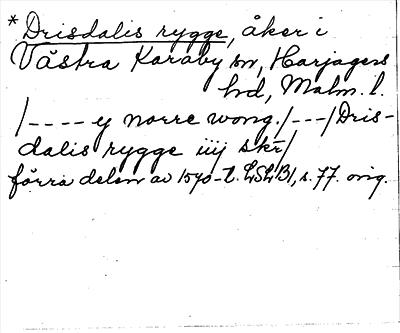 * Drisdalis rygge, åker i
Västra Karaby sn, Harjagers
hd, Malm. l.
/---- ey norre wong. /---/ Dris-
dalis rygge iiij skr/
förra delen av 1570-t. LSLB1, s. 77. orig.